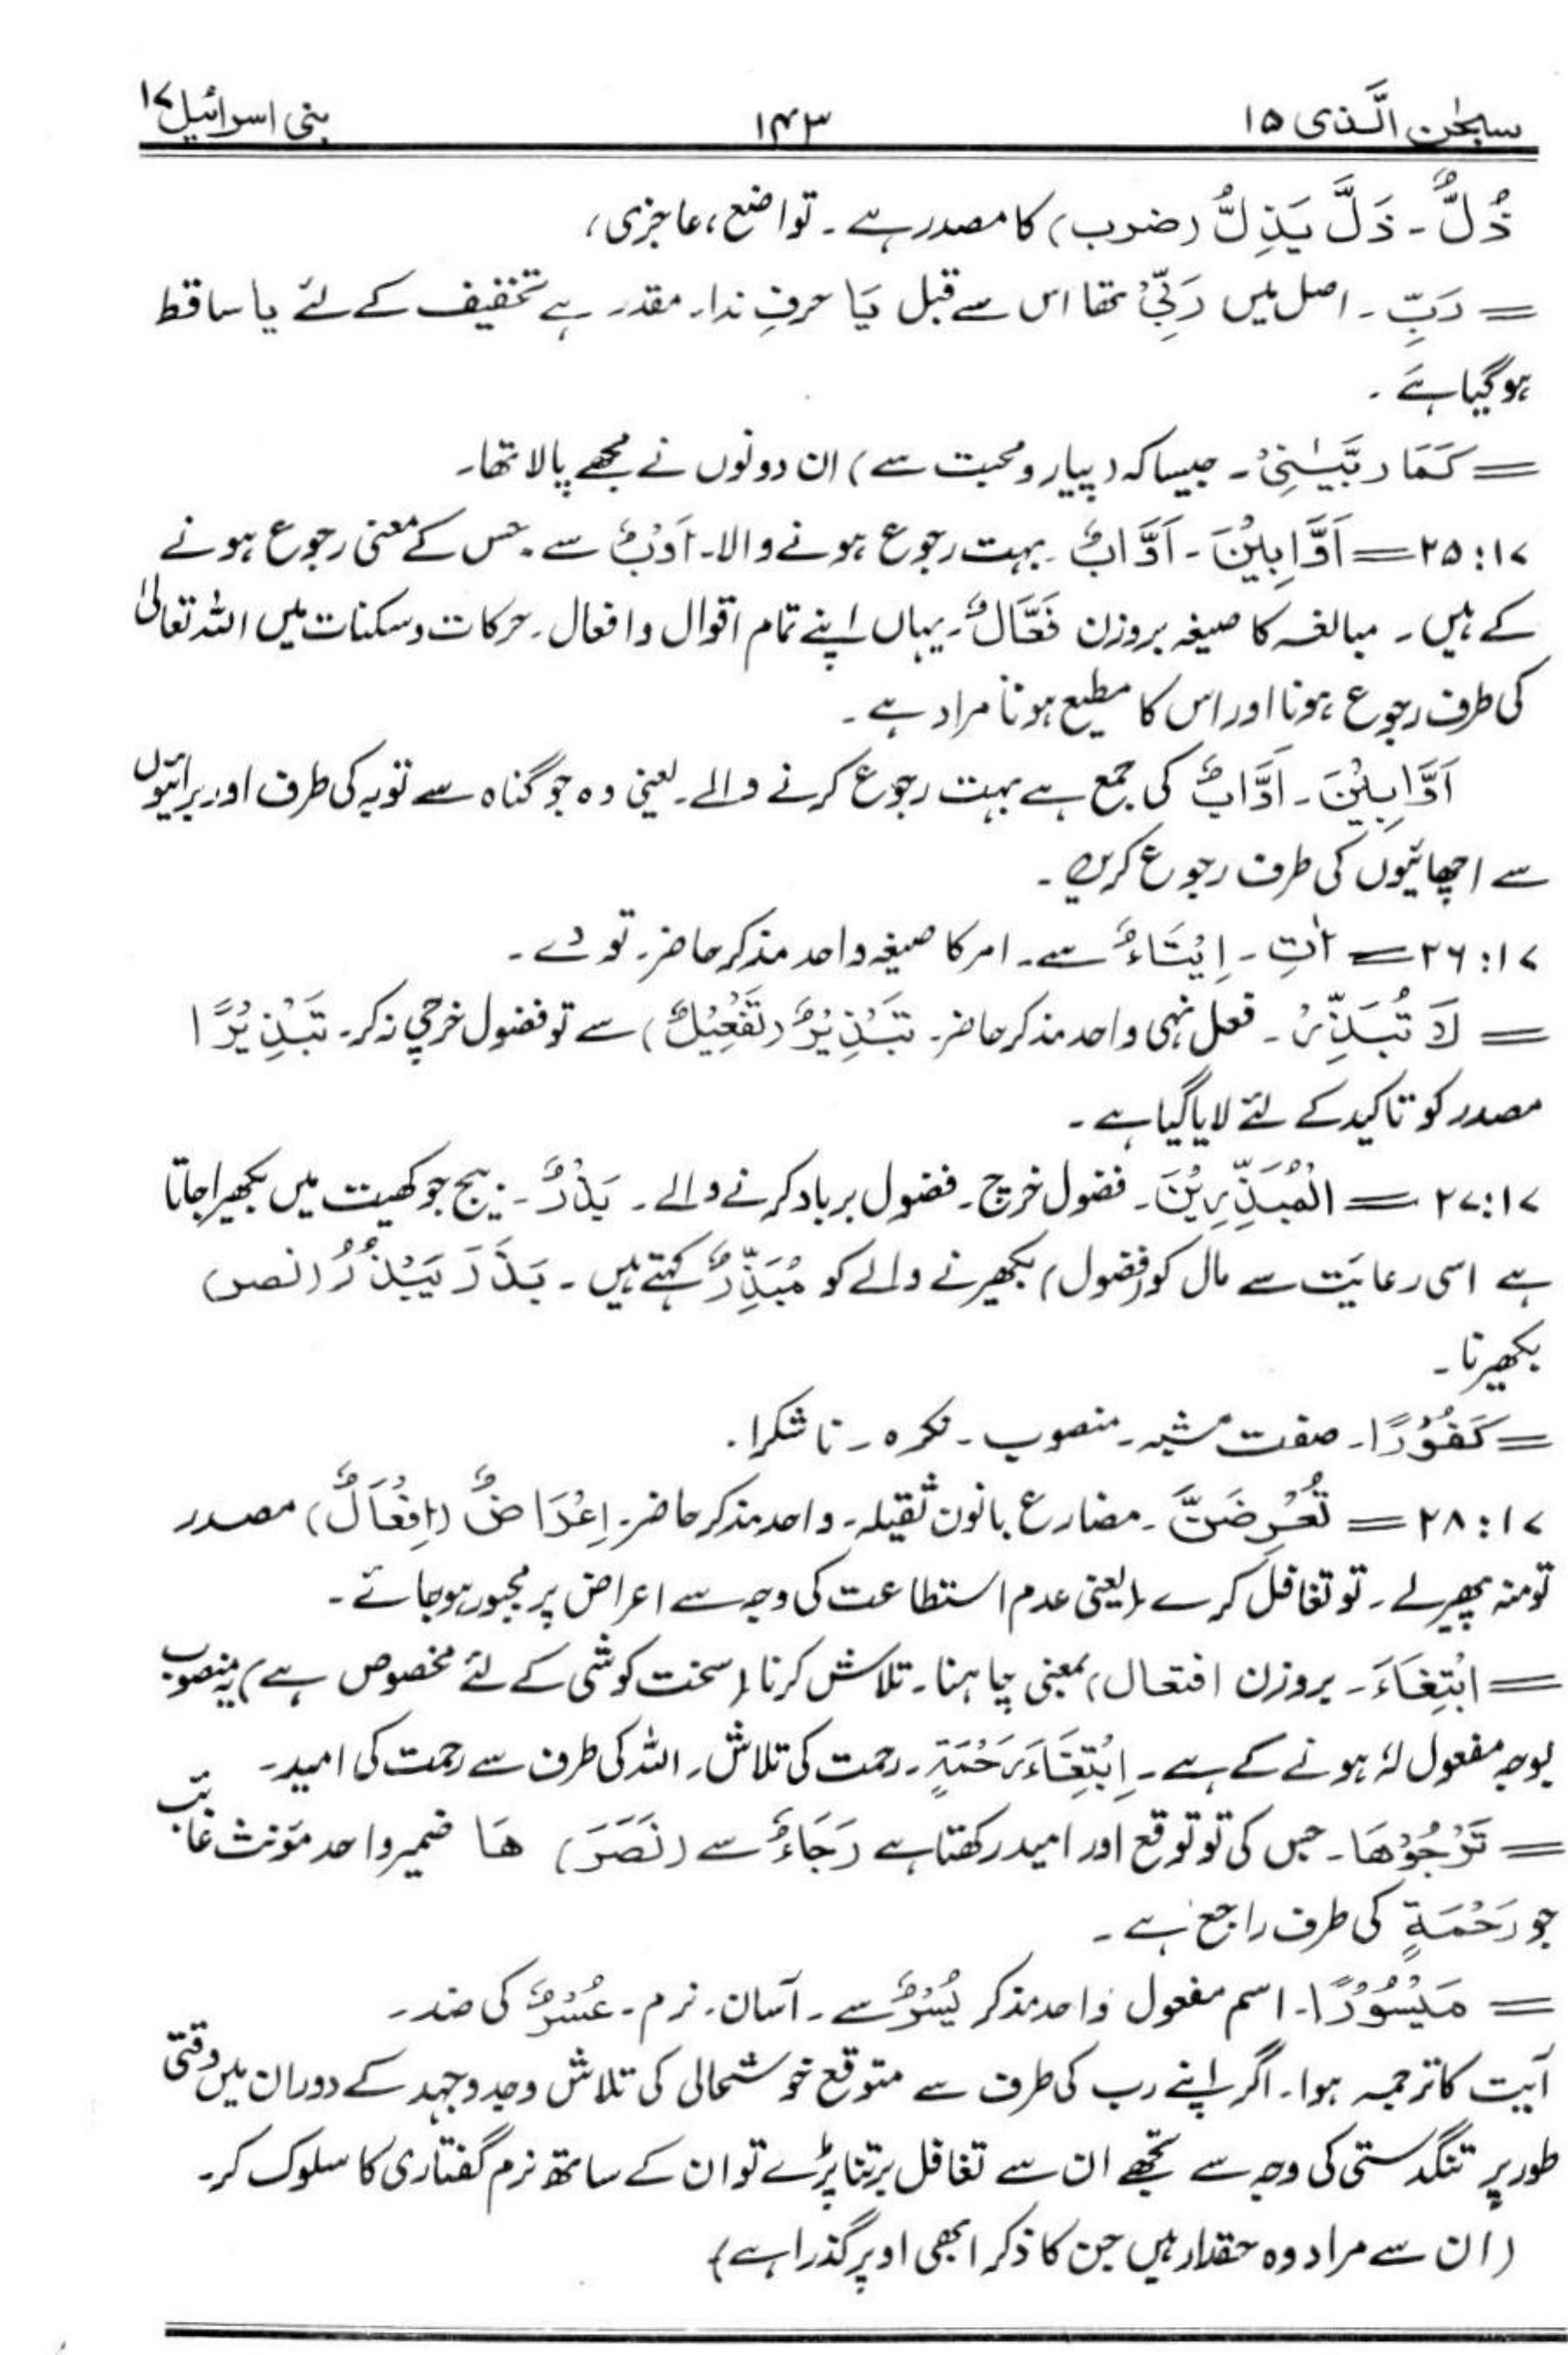 سبحٰن الَّذی ۱۵ ۱۴۳ بنی اسرائیل ۱۷
ذُلٌّ ۔ ذَلَّ یَذِلُّ (ضرب) کا مصدر ہے ۔ تواضع، عاجزی،
= رَبِّ ۔ اصل میں رَبِّیْ تھا اس سے قبل یَا حرفِ ندار مقدر ہے تخفیف کے لئے یا ساقط
ہوگیا ہے ۔
= کَمَا رَبَّیٰنِیْ ۔ جیسا کہ (پیار و محبت سے) ان دونوں نے مجھے پالا تھا۔
۲۵:۱۷ = اَوَّابِیْنَ ۔ اَوَّابٌ ۔ بہت رجوع ہونے والا۔ اَوْبٌ سے ۔ جس کے معنی رجوع ہونے
کے ہیں ۔ مبالغہ کا صیغہ بروزن فَعَّالٌ ۔ یہاں اپنے تمام اقوال و افعال ۔ حرکات و سکنات میں اللہ تعالیٰ
کی طرف رجوع ہونا اور اس کا مطیع ہونا مراد ہے ۔
اَوَّابِیْنَ ۔ اَوَّابٌ کی جمع ہے بہت رجوع کرنے والے ۔ یعنی وہ جو گناہ سے توبہ کی طرف اور برائیوں
سے اچھائیوں کی طرف رجوع کریں ۔
۲۶:۱۷ = اٰتِ ۔ اِیْتَاءٌ سے ۔ امر کا صیغہ واحد مذکر حاضر۔ تو دے ۔
= لَا تُبَذِّرْ ۔ فعل نہی واحد مذکر حاضر ۔ تَبْذِیْرٌ (تَفْعِیْلٌ) سے تو فضول خرچی نہ کر۔ تَبْذِیْرًا
مصدر کو تاکید کے لئے لایا گیا ہے ۔
۲۷:۱۷ = الْمُبَذِّرِیْنَ ۔ فضول خرچ ۔ فضول برباد کرنے والے ۔ بَذْرٌ ۔ بیج جو کھیت میں بکھیرا جاتا
ہے اسی رعایت سے مال کو (فضول) بکھیرنے والے کو مُبَذِّرٌ کہتے ہیں ۔ بَذَرَ یَبْذُرُ (نصر)
بکھیرنا ۔
= کَفُوْرًا ۔ صفت مشبہ ۔ منصوب ۔ نکرہ ۔ ناشکرا ۔
۲۸:۱۷ = تُعْرِضَنَّ ۔ مضارع بانون ثقیلہ ۔ واحد مذکر حاضر ۔ اِعْرَاضٌ (اِفْعَالٌ) مصدر
تو منہ پھیرلے ۔ تو تغافل کرے (یعنی عدم استطاعت کی وجہ سے اعراض پر مجبور ہو جائے ۔
= ابْتِغَاءَ ۔ بروزن افتعال) بمعنی چاہنا ۔ تلاش کرنا (سخت کوشی کے لئے مخصوص ہے) یہ منصوب
بوجہ مفعول لہٗ ہونے کے ہے ۔ اِبْتِغَاءَ رَحْمَةٍ ۔ رحمت کی تلاش ۔ اللہ کی طرف سے رحمت کی امید ۔
= تَرْجُوْھَا ۔ جس کی تو توقع اور امید رکھتا ہے رَجَاءٌ سے (نَصَرَ) ھَا ضمیر واحد مؤنث غائب
جو رَحْمَةٍ کی طرف راجع ہے ۔
= مَیْسُوْرًا ۔ اسم مفعول واحد مذکر یُسْرٌ سے ۔ آسان ۔ نرم ۔ عُسْرٌ کی ضد ۔
آیت کا ترجمہ ہوا ۔ اگر اپنے رب کی طرف سے متوقع خوشحالی کی تلاش و جدوجہد کے دوران میں وقتی
طور پر تنگدستی کی وجہ سے تجھے ان سے تغافل برتنا پڑے تو ان کے ساتھ نرم گفتاری کا سلوک کر۔
(ان سے مراد وہ حقدار ہیں جن کا ذکر ابھی اوپر گذرا ہے)